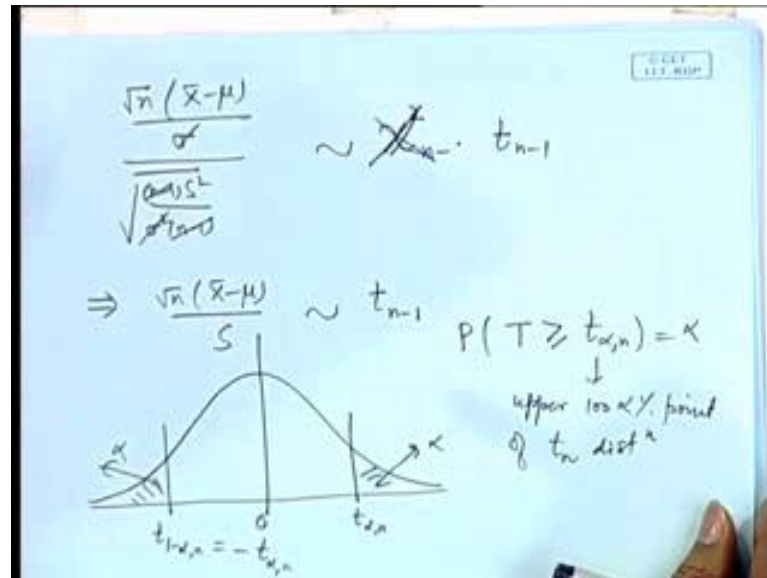 √n (x̄-μ)
σ
√(n-1)S²
σ²(n-1)
~ t_{n-1}
⇒ √n (x̄-μ) / S ~ t_{n-1}
P( T ≥ t_{α,n}) = α
↓
upper 100 α % point
of t_n distⁿ
α
α
t_{1-α,n} = - t_{α,n}
0
t_{α,n}